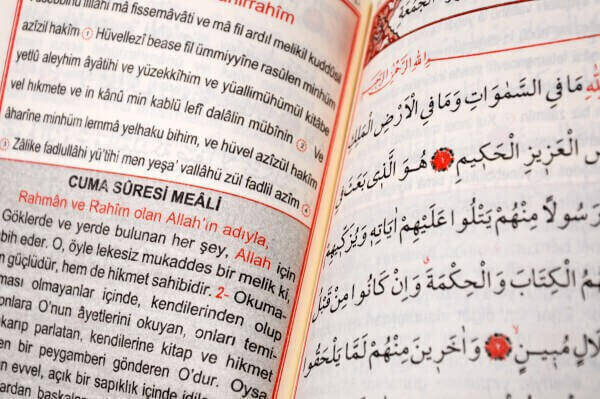 fissemâvâti ve mâ fil ardıl melikil kuddûsil
azîzil hakîm ① Hüvellezî bease fil ümmiyyîne rasûlen minhüm
yetlû aleyhim âyâtihi ve yüzekkîhim ve yüallimühümül kitâbe
vel hıkmete ve in kânû min kablü lefî dalâlin mübînin ② Ve
âharîne minhüm lemmâ yelhaku bihim, ve hüvel azîzül hakîm
③ Zâlike fadlullâhi yü'tîhi men yeşa' vallâhü zül fadlil azîm ④
CUMA SÛRESİ MEÂLİ
Rahmân ve Rahîm olan Allah'ın adıyla,
Göklerde ve yerde bulunan her şey, Allah için
bih eder. O, öyle lekesiz mukaddes bir melik ki,
güçlüdür, hem de hikmet sahibidir. 2- Okuma-
ması olmayanlar içinde, kendilerinden olup
onlara O'nun âyetlerini okuyan, onları temi-
karıp parlatan, kendilerine kitap ve hikmet
bir peygamberi gönderen O'dur. Oysa
evvel, açık bir sapıklık içinde idi
الجمعة
بِسْمِ اللهِ الرَّحْمٰنِ الرَّحِيمِ
مَا فِي السَّمٰوَاتِ وَمَا فِي الْاَرْضِ الْمَلِكِ
الْعَزِيزِ الْحَكِيمِ ١ هُوَ الَّذِي بَعَثَ فِي
رَسُولًا مِنْهُمْ يَتْلُوا عَلَيْهِمْ اٰيَاتِهِ وَيُزَكِّيهِمْ
الْكِتَابَ وَالْحِكْمَةَ وَاِنْ كَانُوا مِنْ قَبْلُ
مُبِينٍ ٢ وَاٰخَرِينَ مِنْهُمْ لَمَّا يَلْحَقُوا